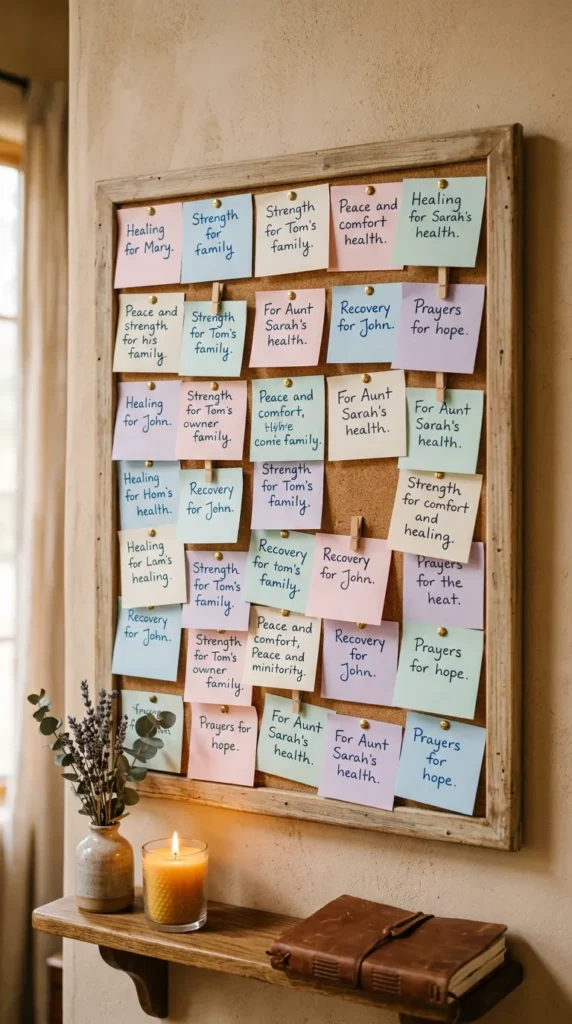 Healing
for Mary.
Strength
for
family
Strength
for Tom's
family.
Peace and
comfort
health.
Healing
for Sarah's
health.
Peace and
strength
for his
family.
Strength
for Tom's
family.
For Aunt
Sarah's
health.
Recovery
for John.
Prayers
for hope.
Healing
for John.
Strength
for Tom's
owner
family.
Peace and
comfort,
family.
For Aunt
Sarah's
health.
For Aunt
Sarah's
health.
Healing
for Hom's
health.
Recovery
for John.
Strength
for Tom's
family.
Strength
for comfort
and
healing.
Healing
for Lam's
healing.
Strength
for Tom's
family.
Recovery
for tom's
family.
Recovery
for John.
Prayers
for the
heat.
Recovery
for John.
Strength
for Tom's
owner
family.
Peace and
comfort,
Peace and
minitority.
Recovery
for
John.
Prayers
for hope.
Prayers for
hope.
For Aunt
Sarah's
health.
For Aunt
Sarah's
health.
Prayers
for
hope.